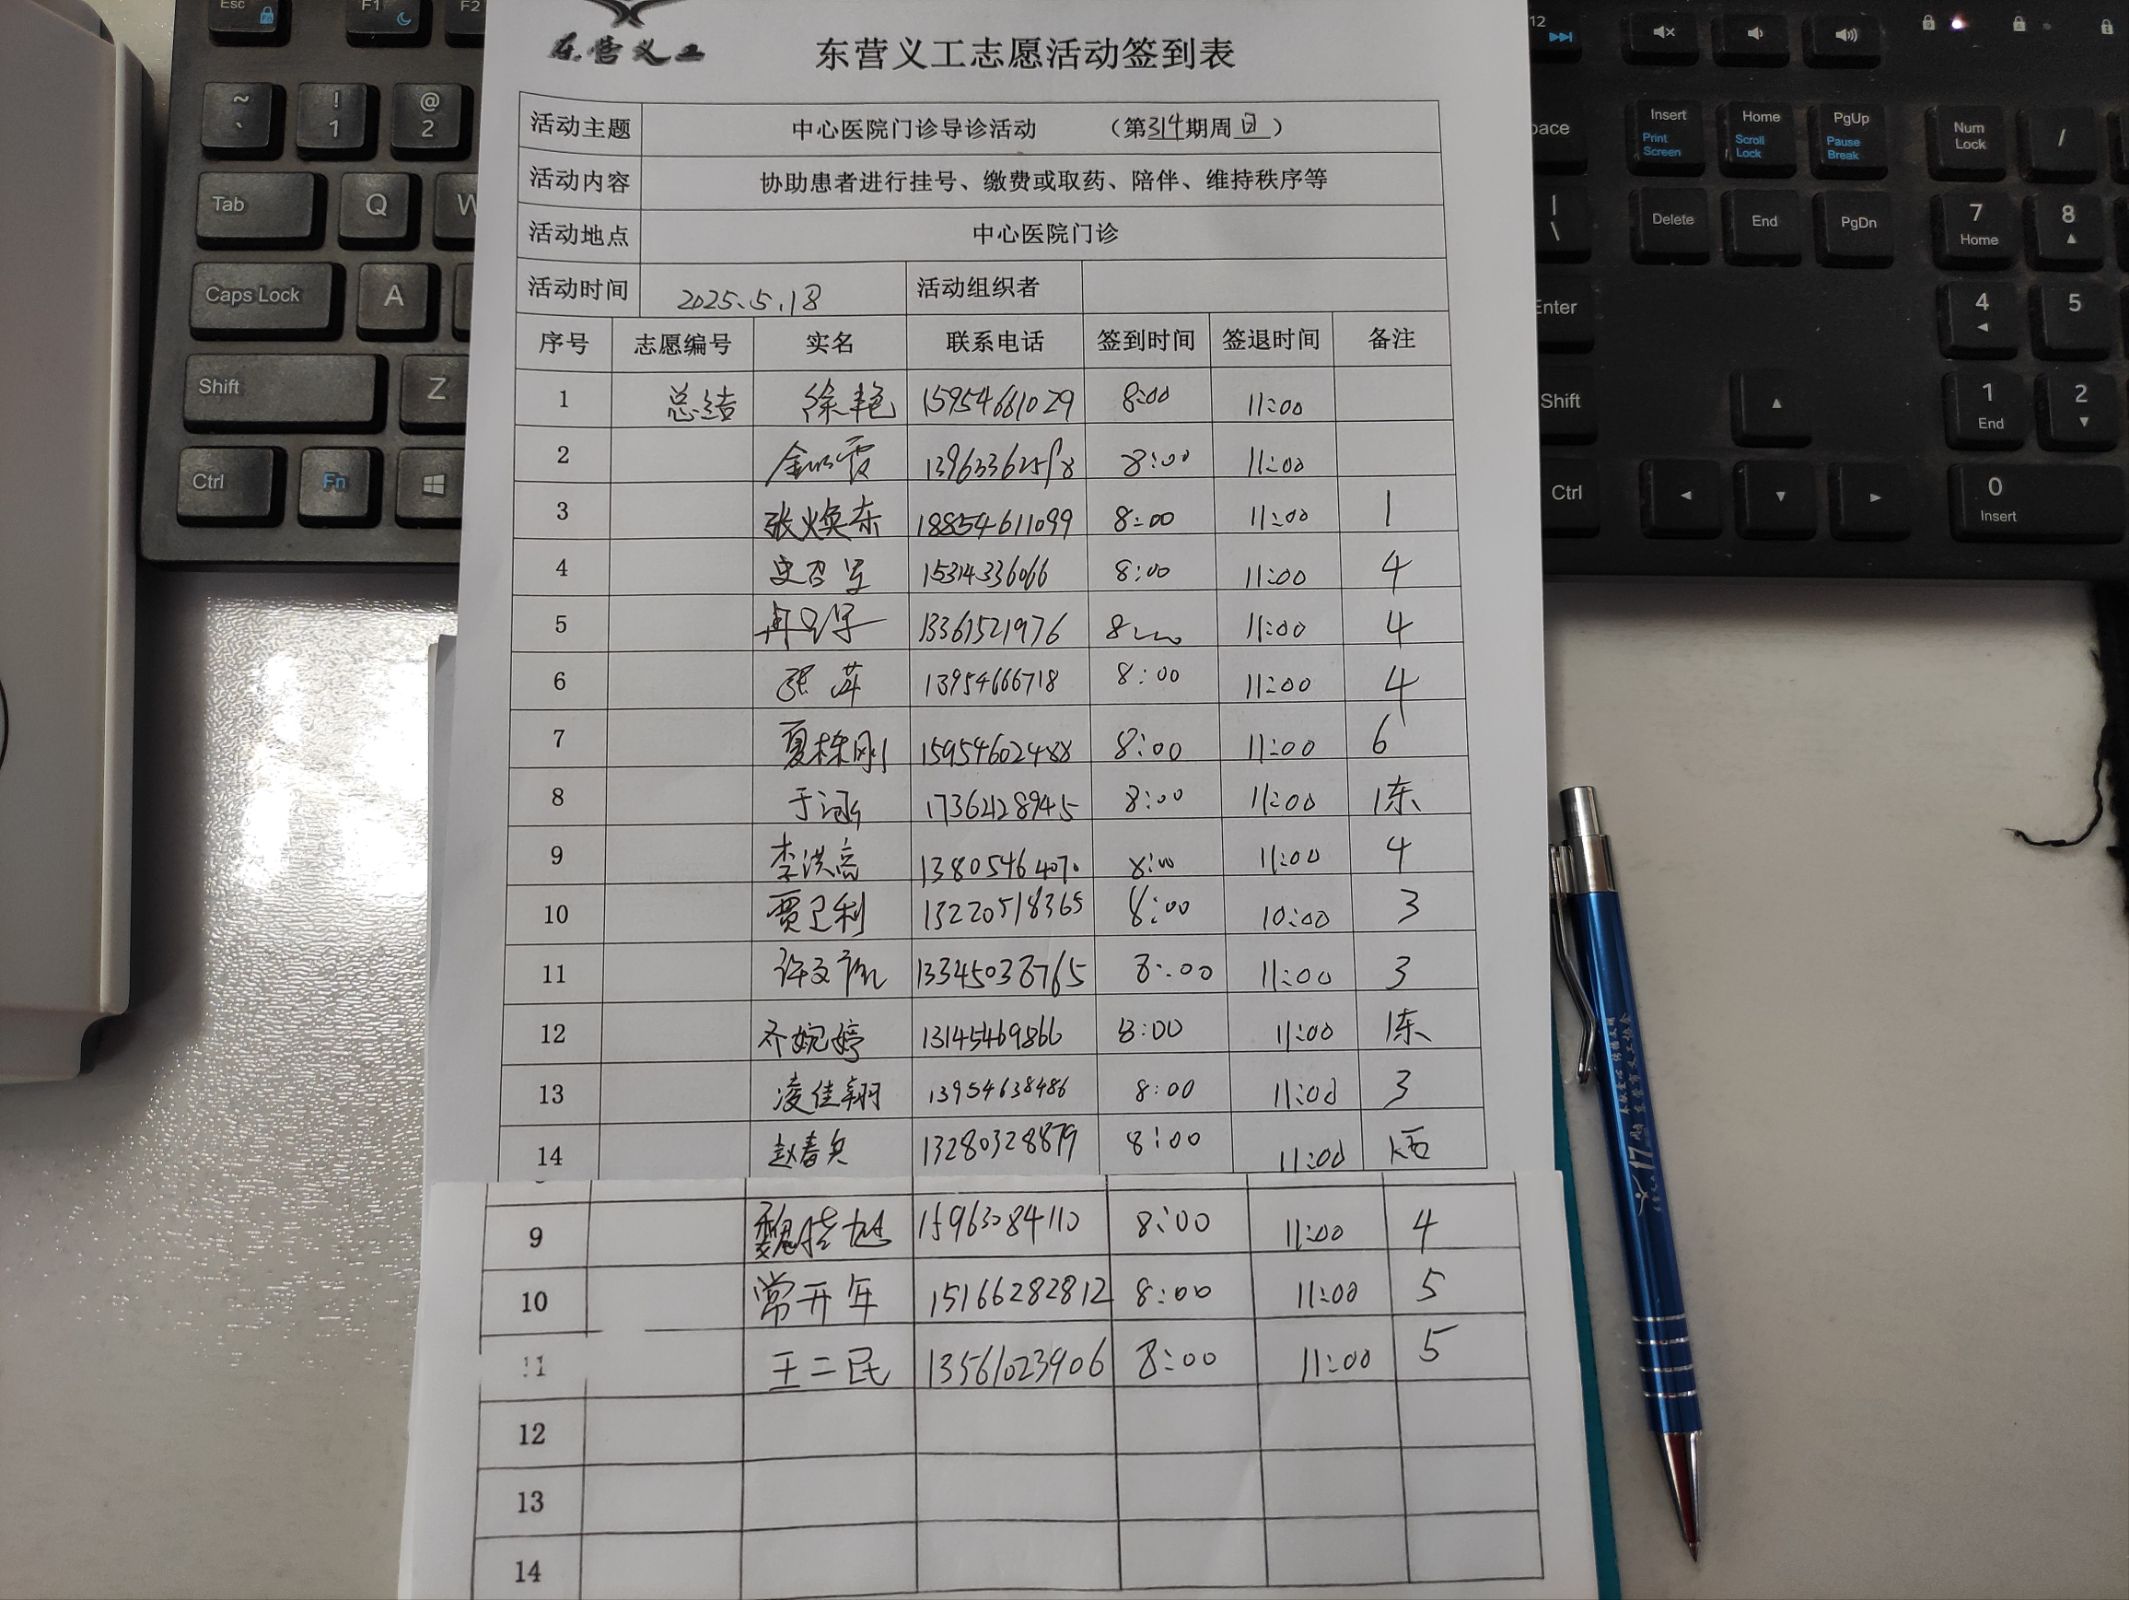 东营义工
东营义工志愿活动签到表
活动主题 中心医院门诊导诊活动 (第314期周日)
活动内容 协助患者进行挂号、缴费或取药、陪伴、维持秩序等
活动地点 中心医院门诊
活动时间 2025.5.18 活动组织者
序号 志愿编号 实名 联系电话 签到时间 签退时间 备注
1 总结 徐艳 15954661029 8:00 11:00
2 8:00 11:00
3 张焕东 18854611099 8:00 11:00 1
4 史召军 15314336066 8:00 11:00 4
5 13361521976 11:00 4
6 张萍 13954666718 8:00 11:00 4
7 夏栋刚 15954602488 8:00 11:00 6
8 于涵 17362128945 8:00 11:00 1东
9 李洪亮 13805464070 8:00 11:00 4
10 贾卫利 13220518365 8:00 10:00 3
11 13345038765 8:00 11:00 3
12 齐婉婷 13145469866 8:00 11:00 1东
13 凌佳翔 13954638486 8:00 11:00 3
14 赵春兵 13280328879 8:00 11:00 1西
9 15963084110 8:00 11:00 4
10 常开年 15166282812 8:00 11:00 5
11 王二民 13561023906 8:00 11:00 5
12
13
14
Esc F1 F2
~ ` ! 1 @ 2
Tab Q W
Caps Lock A
Shift Z
Ctrl Fn
12
Insert Print Screen Home Scroll Lock PgUp Pause Break Num Lock /
| \ Delete End PgDn 7 Home 8
Enter 4 5
Shift 1 End 2
Ctrl 0 Insert
17